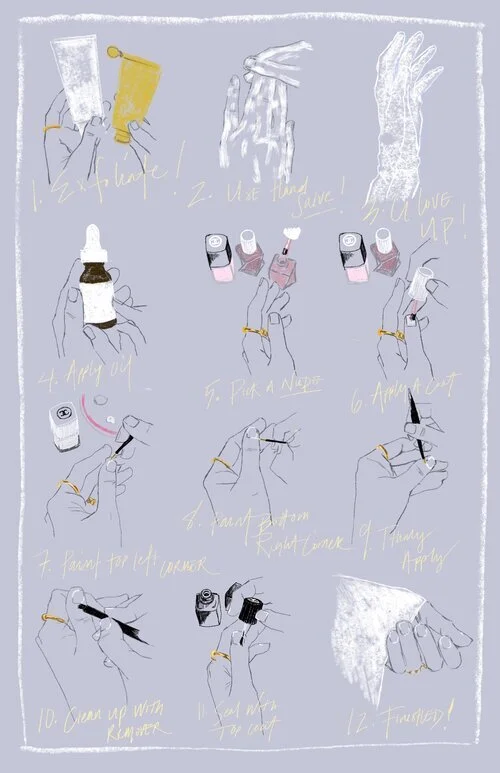 1. Exfoliate!
2. Use Hand
Salve!
3. Glove
Up!
4. Apply Oil
5. Pick a Nude
6. Apply A Coat
7. Paint top left CORNER
8. Paint Bottom
Right Corner
9. Thinly
Apply
10. Clean up with
REMOVER
11. Seal with
Top coat
12. FINISHED!